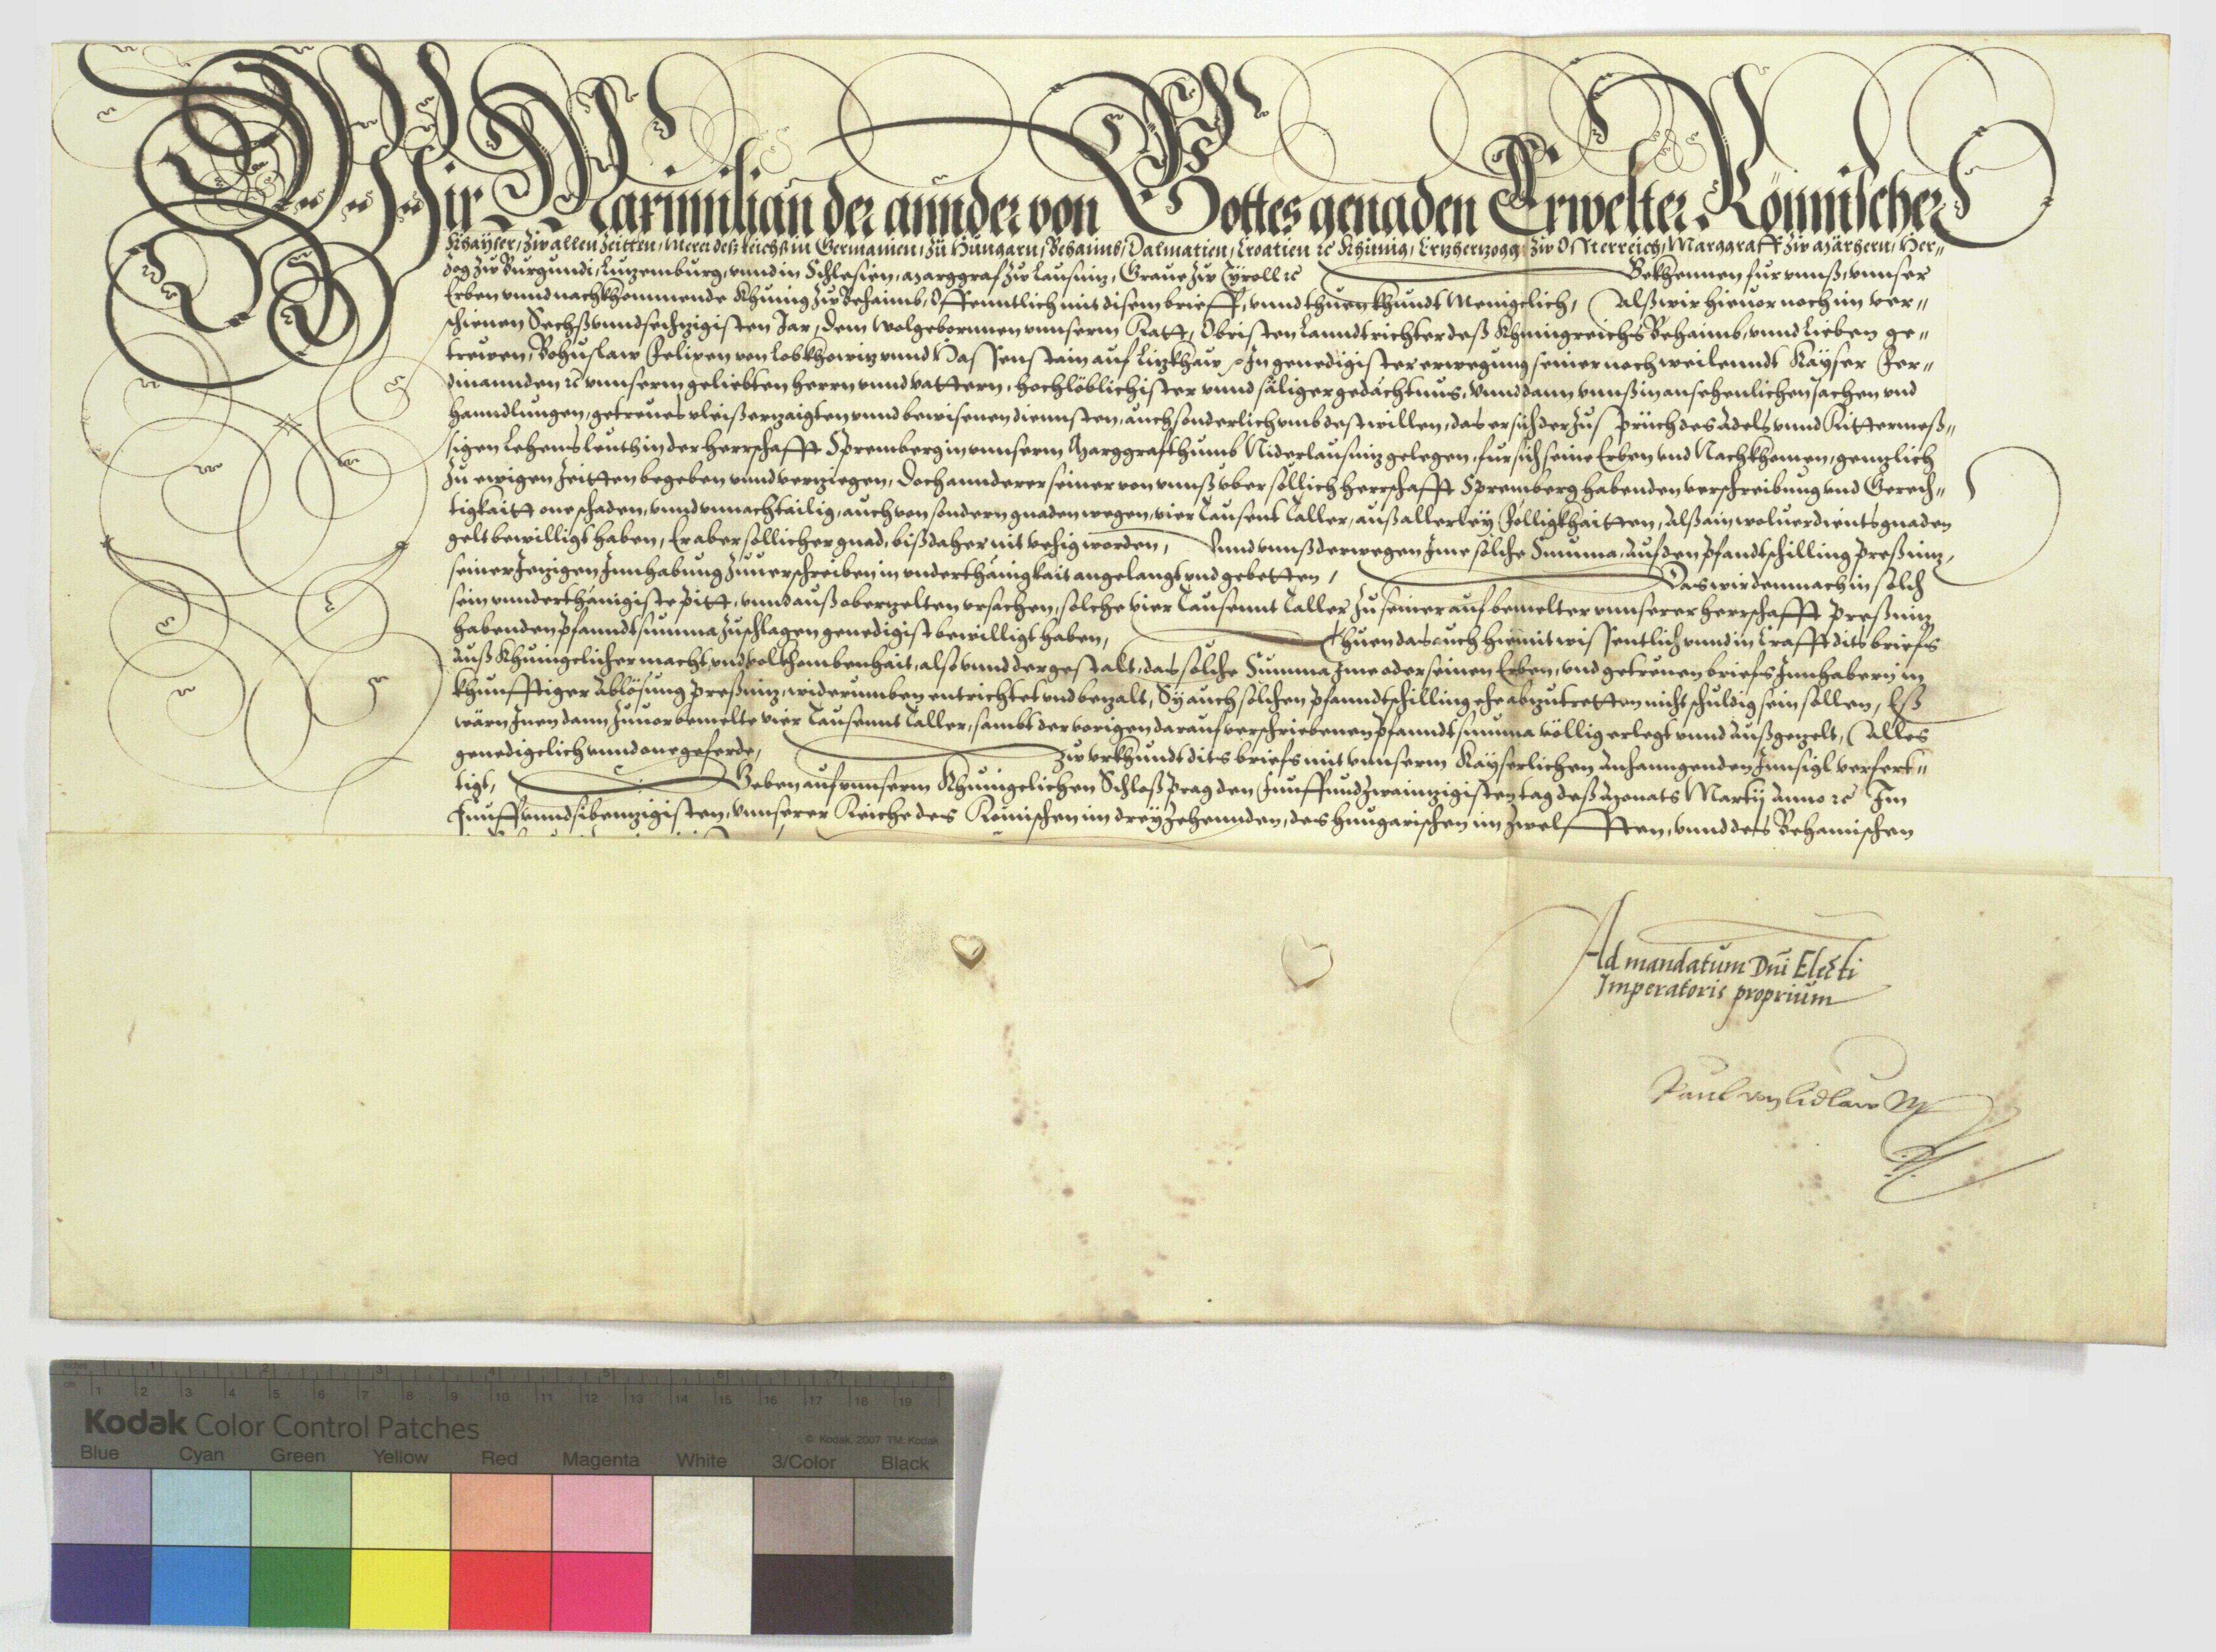 Wir Maximilian der annder von Gottes genaden Erwelter Römischer
Khayser, zw allen Zeitten, Merer des Reichs, in Germanien, zu Hungarn, Behaimb, Dalmatien, Croatien ꝛc Khünig, Ertzhertzog zw Osterreich, Marggraff zw Märhern, Her„
zog zw Burgundi, Lutzemburg, vnnd in Schlesien, Marggraf zw Lausnitz, Graue zw Tyroll ꝛc Bekhennen fur vnnß, vnnser
Erben vnnd nachkhommende Khunig zw Behaimb, Offenntlich mit disem brieff, vnnd thuen khundt Menigelich, Alß wir hieuor noch im ver„
schienen Sechßvndsechzigisten Jar, dem wolgebornnen vnnserm Ratt, Obristen Lanndtrichter deß Khunigreichs Behaimb, vnnd lieben ge„
trewen, Bohuslaw Felixen von Lobkhowitz vnnd Hassenstain auf Litzkhaw, In genedigister erwegung seiner noch weilenndt Kayser Fer„
dinannden ꝛc vnnserm geliebten herrn vnnd vattern, hochlöblichister vnnd säliger gedächtnus, vnnd dann vnnß in ansehenlichen sachen vnd
hanndlungen, getreues vleiß erzaigten vnnd bewisenen diennsten, auch sonderlich vmb dest willen, das er sich der Zusprüch des Adels vnnd Rittermeß„
sigen Lehensleuth in der Herrschafft Spremberg in vnnserm Marggrafthumb Niderlausnitz gelegen, fur sich seine Erben vnd Nachkhomen, gentzlich
zu ewigen Zeitten begeben vnnd vertziegen, Doch annderer seiner von vnnß vber sollich Herrschafft Spremberg habenden verschreibung vnd Gerech„
tigkaitt one schaden, vnnd vnnachtailig, auch von sondern gnaden wegen, vier Tausent Taller, auß allerley Fölligkhaitten, Alß ain woluerdients gnaden
gelt bewilligt haben, Er aber sollicher gnad, biß daher nit vehig worden, Vnnd vnnß derwegen Jme solche Summa, auf den Pfandtschilling Preßnitz,
seiner Jetzigen Jnnhabung zuuerschreiben in underthänigkait angelangt vnd gebetten, Das wir demnach in solch
sein vnnderthänigiste Pitt, vnnd auß obertzelten vrsachen, solche vier Tausennt Taller zu seiner auf bemelter vnnserer Herrschafft Preßnitz
habenden Pfanndtsumma zuschlagen genedigist bewilligt haben, Thuen das auch hiemit wissentlich vnnd in Crafft dits briefs
Auß Khünigelicher macht, vnd volkhombenhait, also vnnd dergestalt, das solche Summa Jme oder seinen Erben, vnd getreuen briefs Jnnhabern in
khunfftiger Ablösung Preßnitz, widerumben entrichtet vnd bezalt, Sy auch solchen Pfanndtschilling ehe abzutretten nicht schuldig sein sollen, Eß
wärn Jnen dann zuuor bemelte vier Tausennt Taller, sambt der vorigen darauf verschriebenen Pfanndtsumma völlig erlegt vnnd Außgezelt, Alles
genedigelich vnnd one geferde, Zw vrkhundt dits briefs mit vnnserm Kayserlichen Anhanngenden Jnnsigl verfert„
tigt, Geben auf vnnserm Khunigelichen Schloß Prag den Funffundzwaintzigisten tag deß Monats Marty Anno ꝛc Im
Funffvnndsibentzigisten, vnnserer Reiche des Römischen im dreyzehennden, des Hungarischen im Zwelfften, vnnd des Behamischen
Ad mandatum Dnī Electi
Imperatoris proprium
Kodak Color Control Patches
© Kodak, 2007 TM: Kodak
Blue Cyan Green Yellow Red Magenta White 3/Color Black